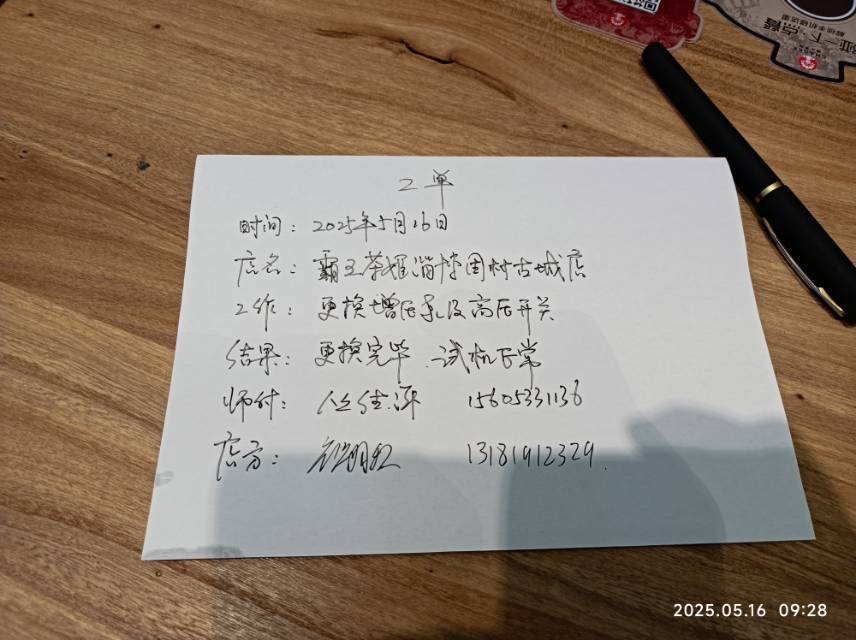 一下点餐
工单
时间：2025年5月16日
店名：霸王茶姬淄博周村古城店
工作：更换增压泵及高压开关
结果：更换完毕.试机正常
师付： 15605331136
店方： 13181912329.
2025.05.16 09:28